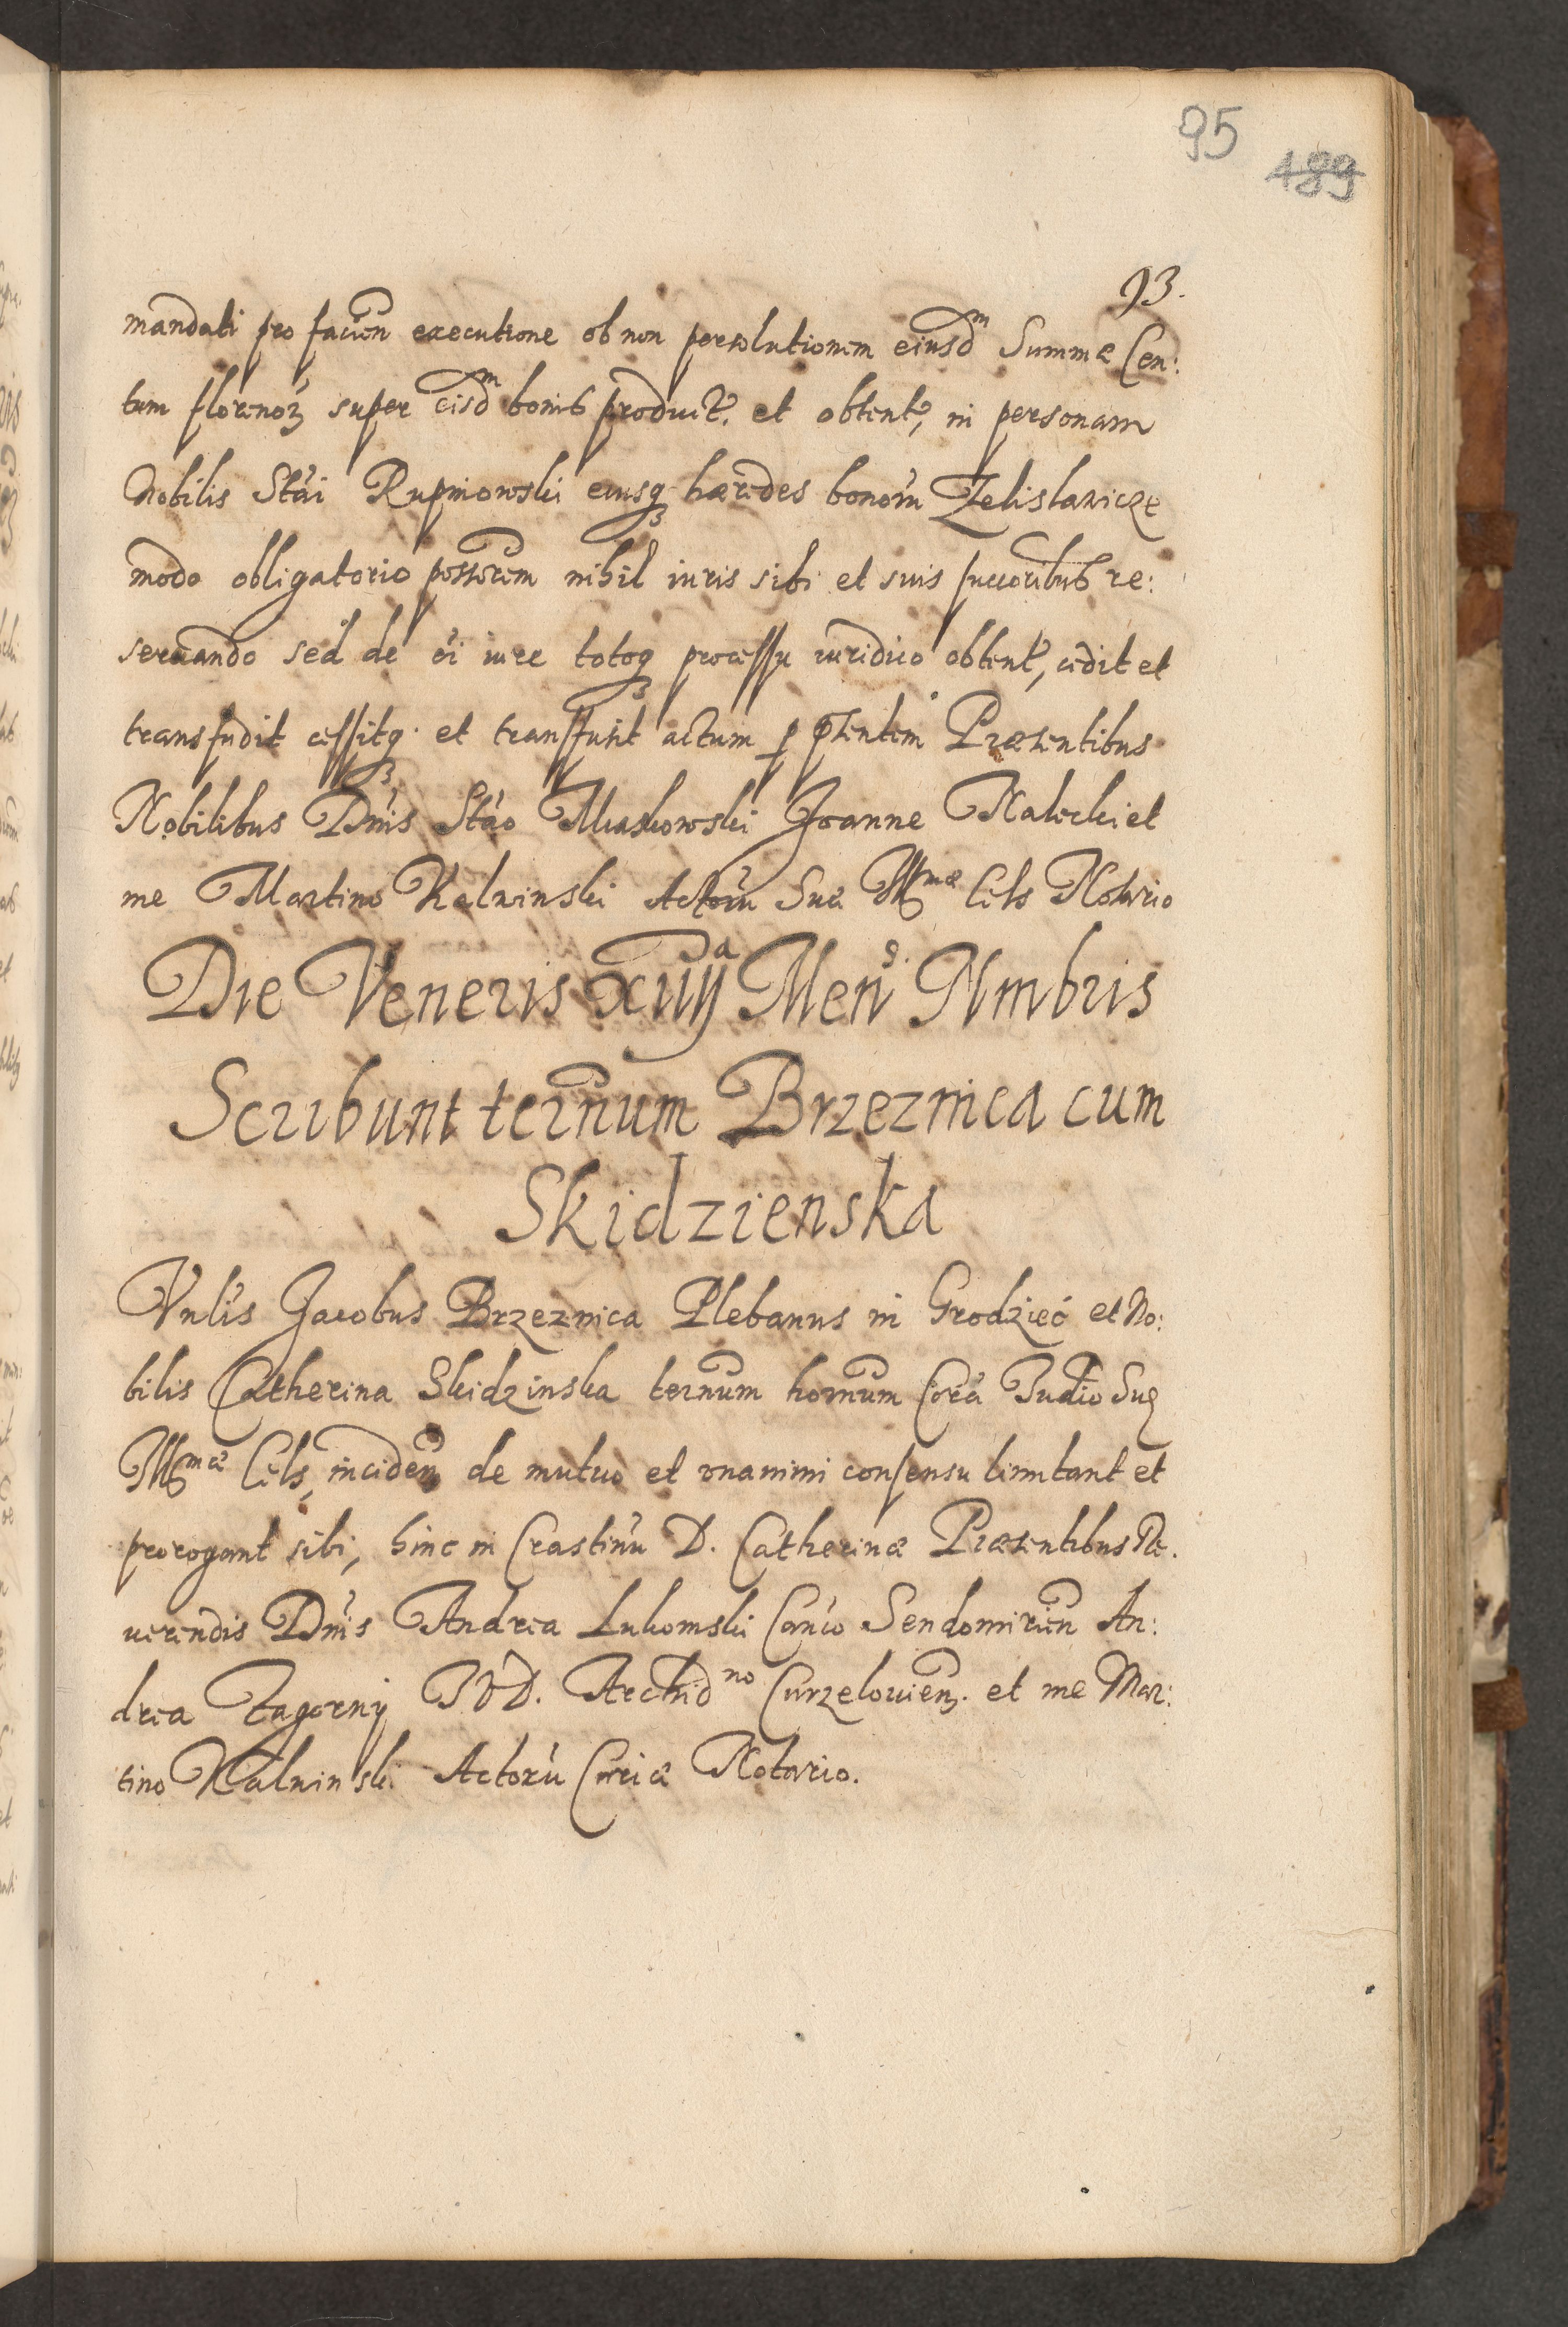 95
489
93.
mandati pro facien executione ob non persolutionem eiusdm Summæ Cen:
tum florenoꝝ super eisdm bonis produit. et obtent, in personam
Nobilis Stai Rupniowski eiusqꝫ hæredes bonoru Zelislawicze
modo obligatorio possorem nihil iuris sibi et suis succoribus re:
seruando sed de ei iure totoqꝫ processu iuridico obtent, cedit et
transfudit cessitqꝫ et transfusit actum ꝑ pñtentem Præsentibus
Nobilibus Dnis Stao Maskowski Joanne Nalecki et
me Martino Kalwinski Actoru Suæ Illmæ Cels Notario
Die Veneris xiiija Mens Nmbris
Scribunt ternum Brzeznica cum
Skidzienska
Vnlis Jacobus Brzeznica Plebanus in Grodziec et No:
bilis Catherina Skidzinska ternum hornum Cora Judio Suę
Illmæ Cels, inciden de mutuo et vnanimi consensu limitant et
prorogant sibi, hinc in Crastinu D. Catherinæ Præsentibus Re.
uerendis Dnis Andrea Lukomski Canco Sendomirien An:
drea Zagorny JVD. Archidno Curzelouien. et me Mar:
tino Kalwinski Actoru Curiæ Notario.